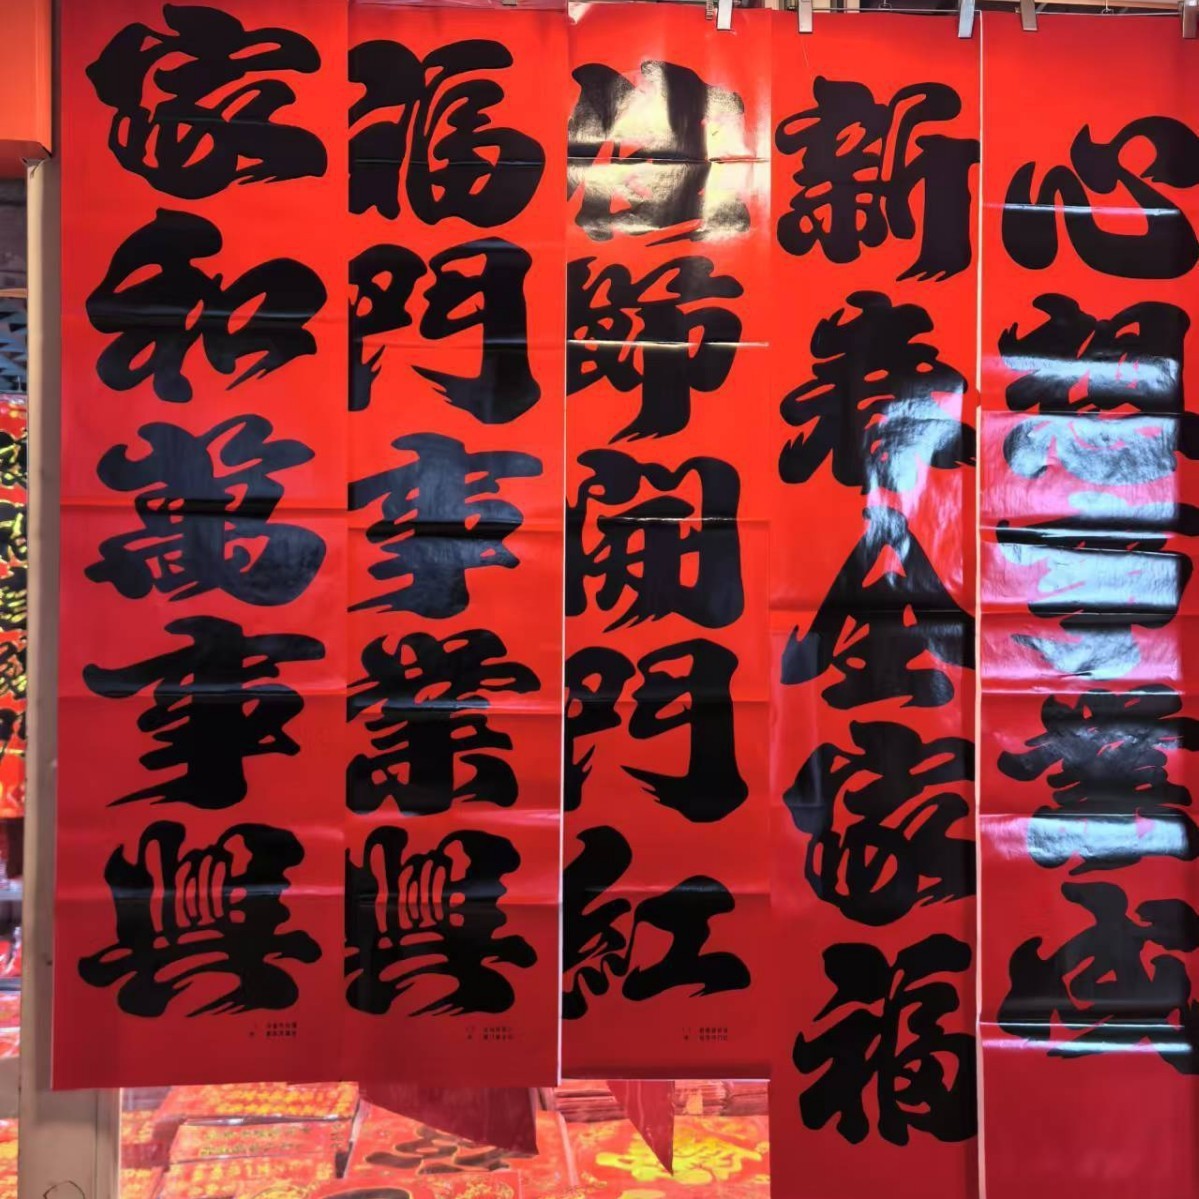 心想
新春全家福
佳節開門紅
福門事業興
家和萬事興